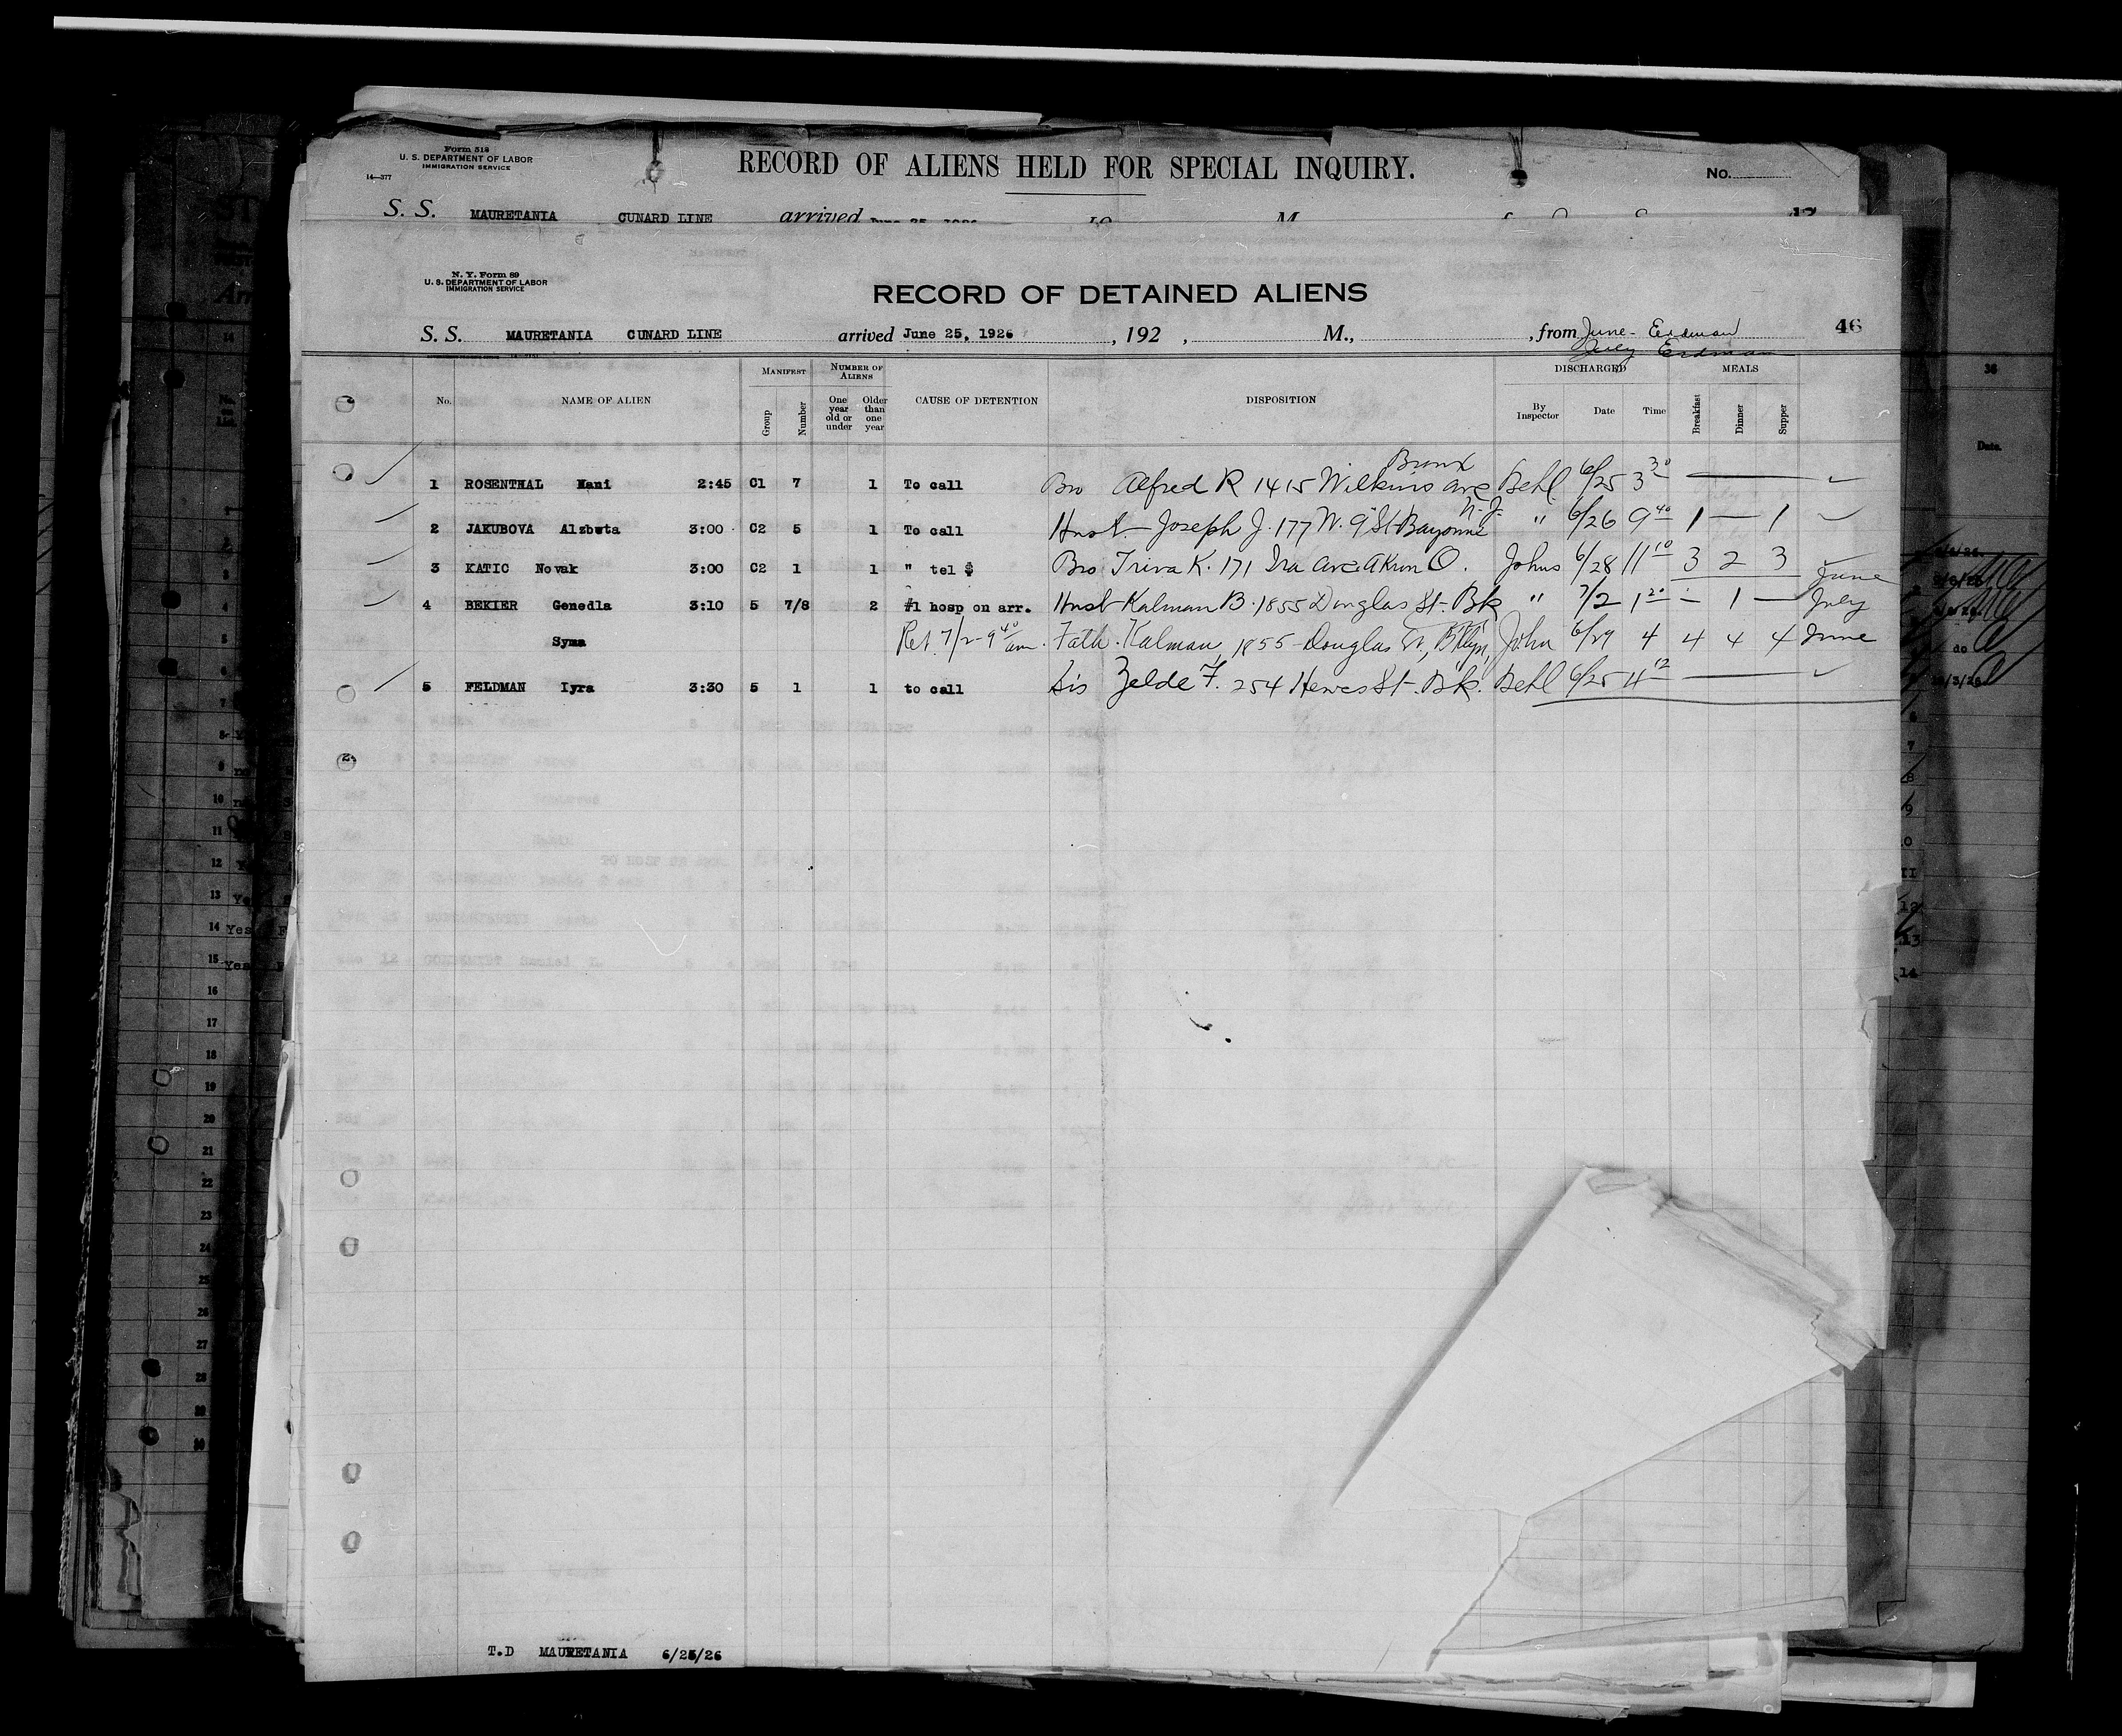 Form 518
U. S. DEPARTMENT OF LABOR
IMMIGRATION SERVICE
14—377
RECORD OF ALIENS HELD FOR SPECIAL INQUIRY.
No.
S. S. MAURETANIA CUNARD LINE arrived June 25, 1926
N. Y. Form 89
U. S. DEPARTMENT OF LABOR
IMMIGRATION SERVICE
RECORD OF DETAINED ALIENS
S. S. MAURETANIA CUNARD LINE arrived June 25, 1926 , 192 , M., , from June - Erdman 46
July Erdman
No. NAME OF ALIEN MANIFEST Group Number NUMBER OF ALIENS One year old or under Older than one year CAUSE OF DETENTION DISPOSITION DISCHARGED By Inspector Date Time MEALS Breakfast Dinner Supper
Bronx
1 ROSENTHAL Mani 2:45 C1 7 1 To call Bro Alfred R 1415 Wilkins ave Behl 6/25 3 30 —
N.J.
2 JAKUBOVA Alzbeta 3:00 C2 5 1 To call Husb. - Joseph J. 177 W. 9 St Bayonne " 6/26 9 40 1 — 1
3 KATIC Novak 3:00 C2 1 1 " tel $ Bro Triva K. 171 Ira ave Akron O. Johns 6/28 11 10 3 2 3 June
4 BEKIER Genedla 3:10 5 7/8 2 #1 hosp on arr. Husb Kalman B. 1855 Douglas St. Bk " 7/2 1 20 - 1 — July
Syma Ret. 7/2 - 9 40 am. Fath. Kalman, 1855 - Douglas St, Bklyn, John 6/29 4 4 4 4 June
5 FELDMAN Iyra 3:30 5 1 1 to call Sis Zelde F. 254 Hewes St. Bk. Behl 6/25 4 12 —
T.D MAURETANIA 6/25/26